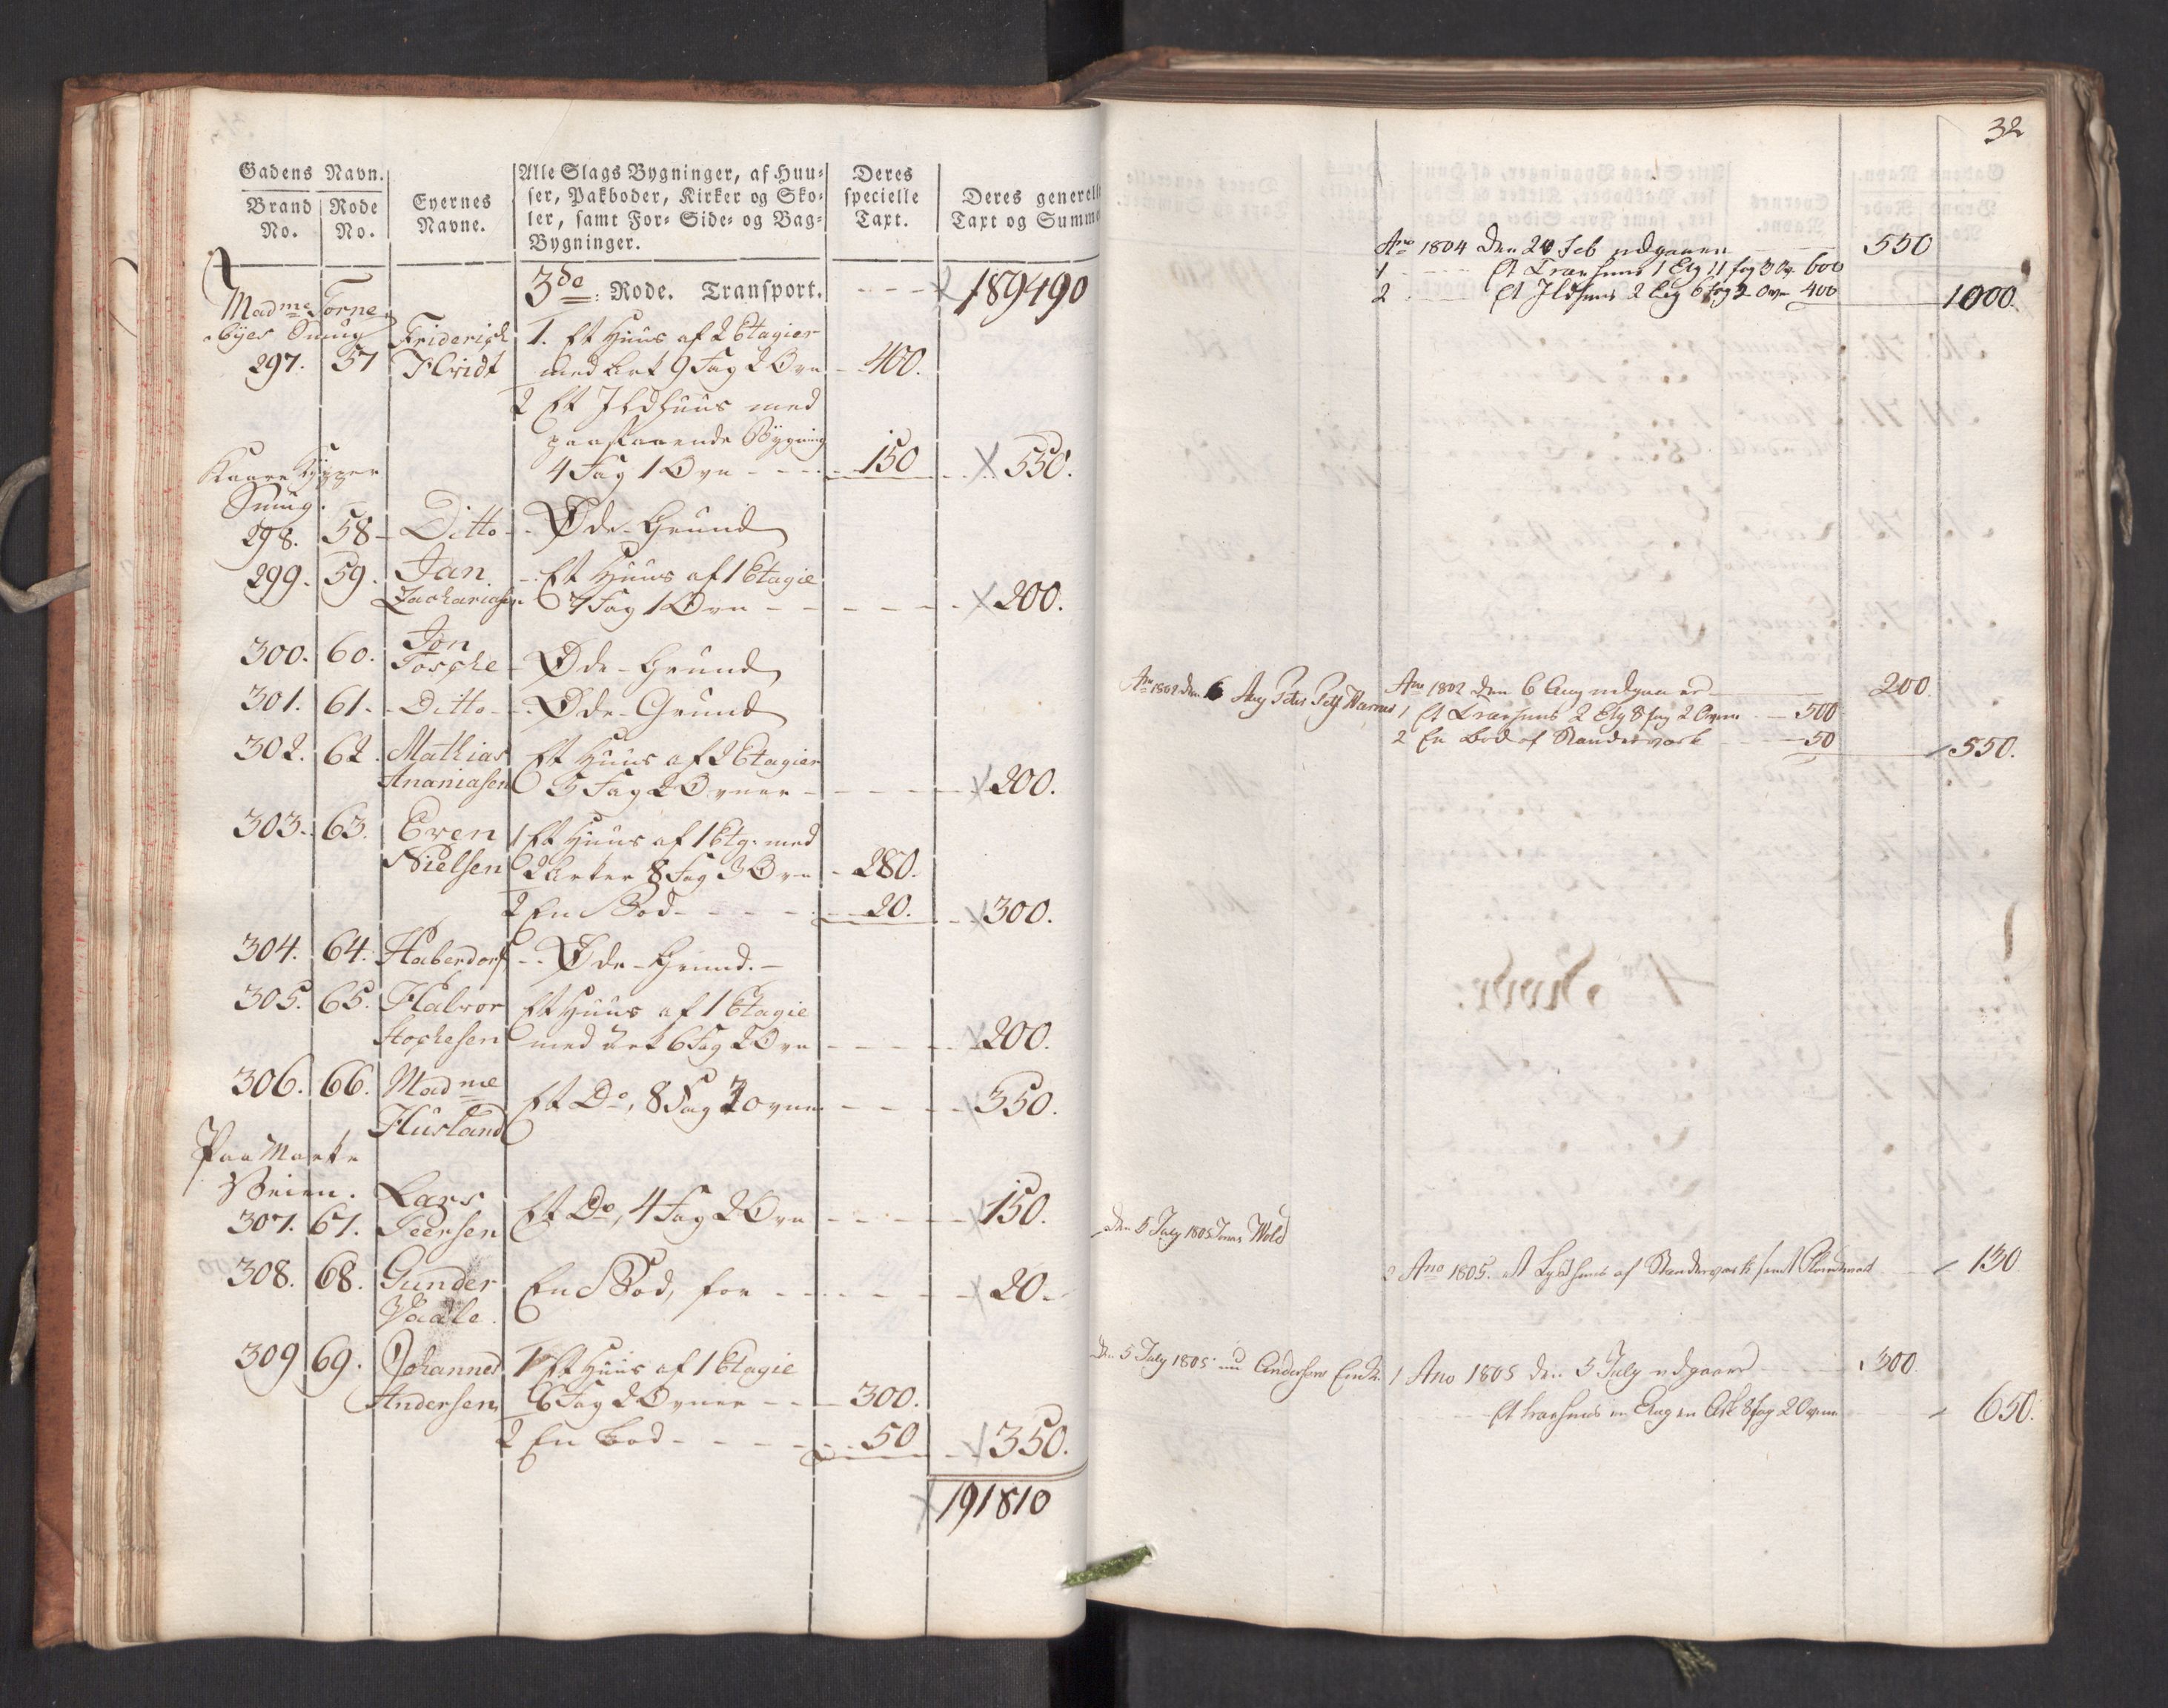 Gadens Navn.
Brand No.
Rode No.
Eyernes Navne.
Alle Slags Bygninger, af Huu-
ser, Pakboder, Kirker og Sko-
ler, samt For- Side- og Bag-
Bygninger.
Deres specielle Taxt.
Deres generelle
Taxt og Summe
3de Rode. Transport. - - - 189490
Madme Torne
byes Smug
297. 57 Friderich 1. Et Huus af 2 Etagier
med Ark 9 Fag 2 Ovn - 400.
2 Et Ildhuus med
paastaaende Bygning
4 Fag 1 Ovn - - - 150 - - 550.
Smug.
298. 58 - Ditto - - Øde-Grund
299. 59. Jan - Et Huus af 1 Etagie
Zachariasen 7 Fag 1 Ovn - - - - - 200.
300. 60. Jon
Øde-Grund
301. 61. - Ditto - - Øde-Grund
302. 62. Mathias Et Huus af 2 Etagier
Ananiasen 5 Fag 2 Ovner - - - - 200.
303. 63. Even 1 Et Huus af 1 Etg: med
Nielsen 2 Arker 8 Fag 3 Ovn - 280.
2 En Bod - - - - 20. - 300.
304. 64. Haberdorf - - Øde-Grund. -
305. 65. Halvor Et Huus af 1 Etagie
med Ark 6 Fag 2 Ovn - - - - 200.
306. 66. Madme
Husland Et Do, 8 Fag 3 Ovne - - - - 350.
Paa Marke
Veien.
307. 67. Lars
Peersen Et Do, 4 Fag 2 Ovn - - - - 150.
308. 68. Gunder
Vaale. En Bod, for - - - - - 20 -
309 69. Johannes 1 Et Huus af 1 Etagie
Andersen 6 Fag 2 Ovner - - 300.
2 En Bod - - - - 50 - 350.
191810
32
Ano 1804 den 24 Feb udgaaer 550
1 - - - Et Træehuus 1 Etg 11 fag 3 Ov. 600
2 - - - Et Ildhuus 2 Etg 6 fag 2 Ovn 400 1000.
Ano 1802 den 6 Aug
Ano 1802 den 6 Aug udgaaer 200.
1 Et Træehuus 2 Etg 8 fag 2 Ovne - 500
2 En Bod af Standerværk - - 50 550.
Den 5 July 1805 Jonas Wold
2 Ano 1805. et Lysthuus af Standerværk samt - 130
Den 5 July 1805 nu Andersens Enke
1 Ano 1805 den 5 July udgaaer 300.
Et træehuus en Etag en Ark 8 fag 2 Ovne - 650.